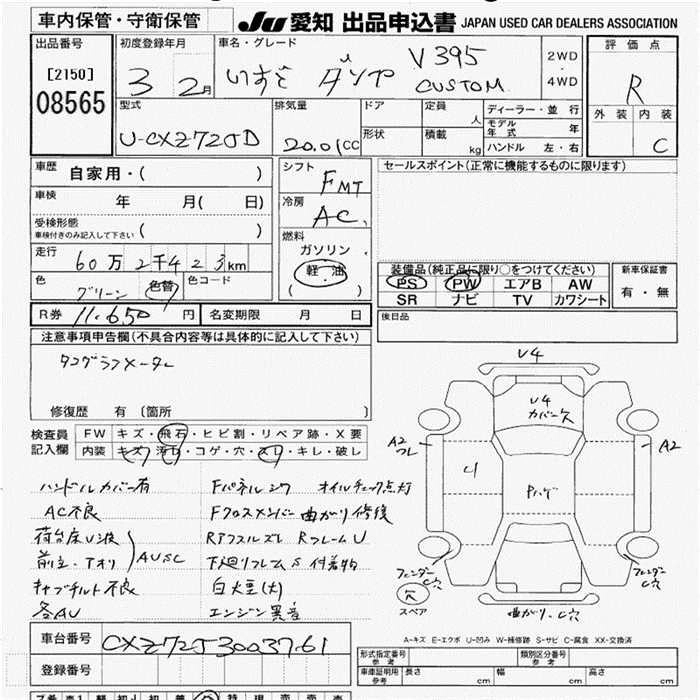 車内保管・守衛保管
JU 愛知 出品申込書 JAPAN USED CAR DEALERS ASSOCIATION
出品番号
[2150]
08565
初度登録年月
3 2月
車名・グレード
いすゞ V395
CUSTOM
2WD
4WD
評価点
R
外装 内装
C
型式
U-CXZ72JD
排気量
20.01CC
ドア
形状
定員 人
積載 kg
ディーラー・並行
モデル年式 年
ハンドル 左・右
車歴 自家用・( )
車検 年 月( 日)
受検形態
車検付きのみ記入して下さい ( )
走行 60万2千423km
色 グリーン 色替 色コード
シフト FMT
冷房 AC
燃料
ガソリン
軽・油
( )
セールスポイント(正常に機能するものに限ります)
装備品(純正品に限り○をつけてください)
PS PW エアB AW
SR ナビ TV カワシート
新車保証書
有・無
R券 11,650円 名変期限 月 日
後日品
注意事項申告欄(不具合内容等は具体的に記入して下さい)
タコグラフメーター
修復歴 有 [箇所 ]
検査員
記入欄
FW キズ・飛石・ヒビ割・リペア跡・X要
内装 キズ・汚れ・コゲ・穴・スレ・キレ・破レ
ハンドルカバー有
AC不良
荷台床U波
前立、アオリ AUSC
キャブチルト不良
各AU
Fパネルシワ オイルチェック点灯
Fクロスメンバー曲がり修復
Rアフスルズレ RフレームU
下廻りフレームS付着物
白大豆(大)
エンジン異音
V4
V4
カバー欠
A2
フレ
A2
U
Pハゲ
フェンダー
C穴
フェンダー
C穴
穴
スペア
曲がり、C穴
A-キズ E-エクボ U-凹み W-補修跡 S-サビ C-腐食 XX-交換済
車台番号 CXZ72J3003761
登録番号
形式指定番号
参考
類別区分番号
参考
車庫証明用
参考
長さ cm 幅 cm 高さ cm